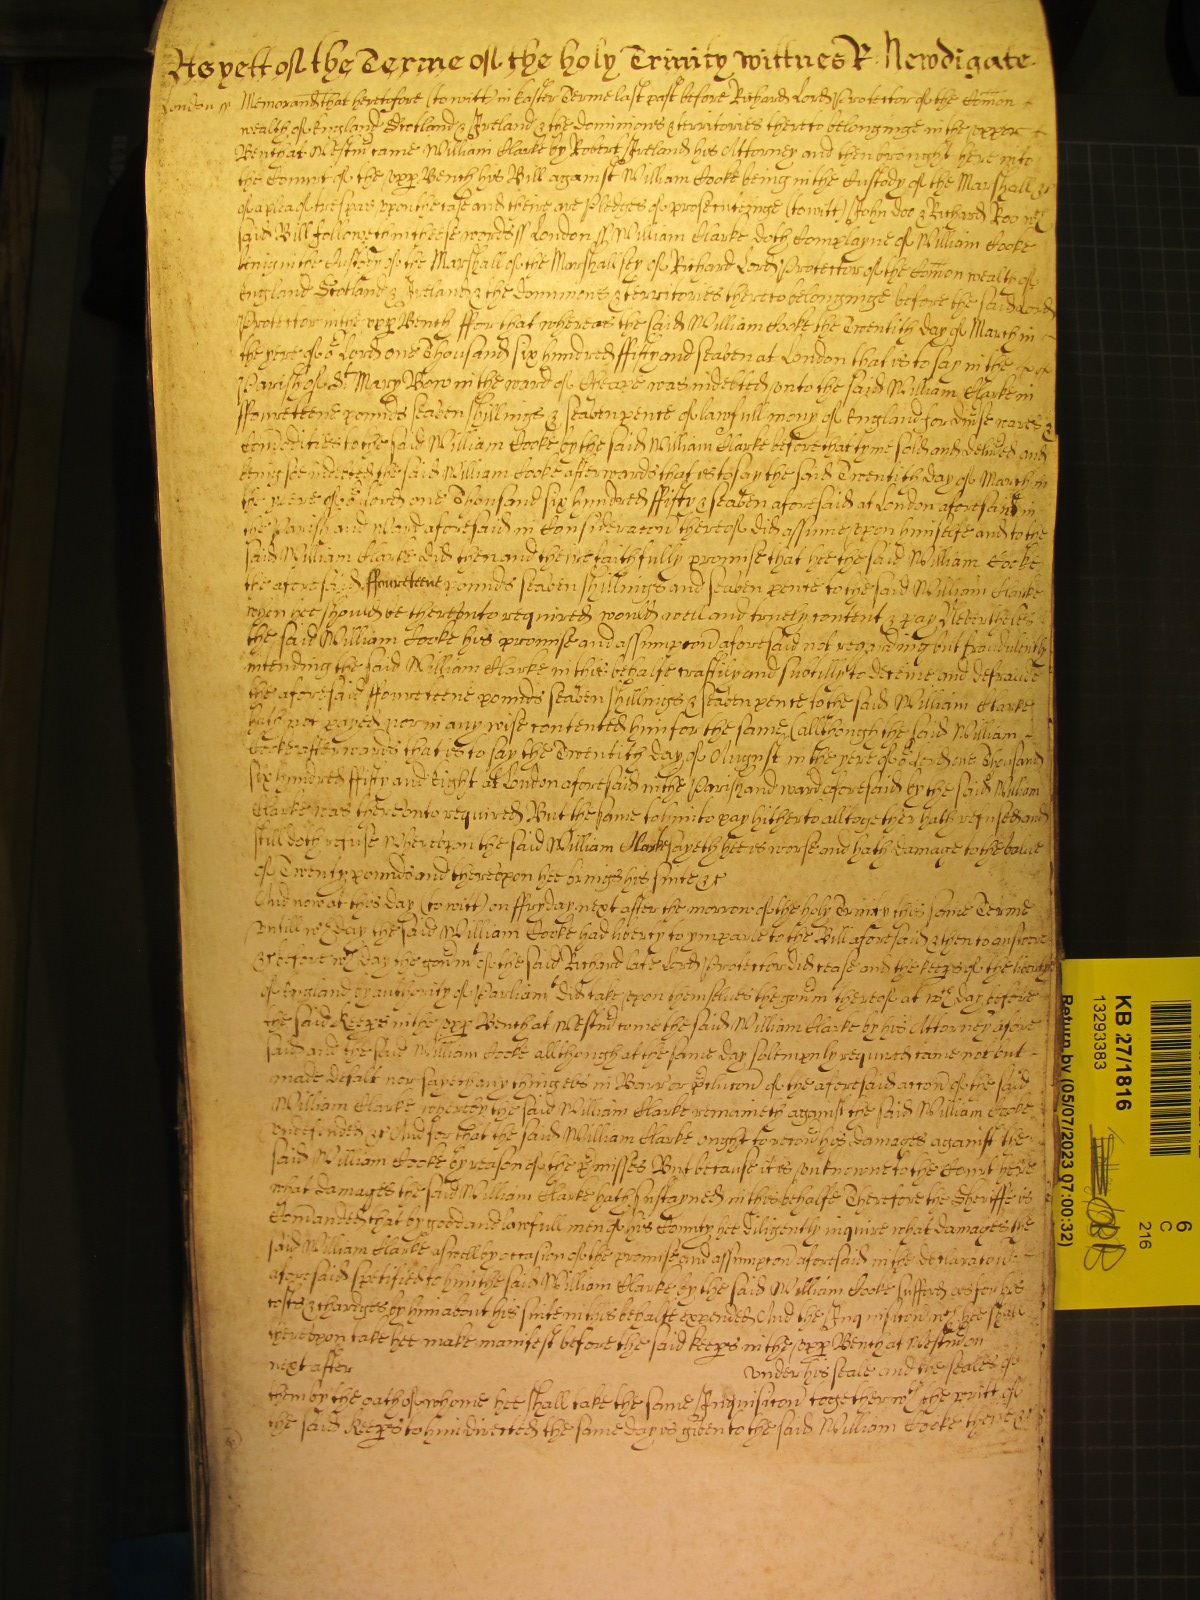 As yett of the Terme of the holy Trinity wittnes R. Newdigate
London ss Memorand that heretofore (to witt) in Easter Terme last past before Richard Lord Protector of the Com̄on
wealth of England Scotland & Ireland & the dominions & territories thereto belonginge in the upper
Bench at Westm̄ came William Clarke by Robert Ireland his Attorney and then brought here into
the Court of the upp Bench his Bill against William Cooke being in the Custody of the Marshall &c
of a plea of trespas upon the case and there are Pledges of prosecutinge (to witt) John Doo & Richard Roo wch
said Bill followeth in theese words ss London ss William Clarke doth Complayne of William Cooke
being in the Custody of the Marshall of the Marshallsey of Richard Lord Protector of the Com̄on wealth of
England Scotland & Ireland & the dominions & territories thereto belonginge before the said Lord
Protector in the upp Bench ffor that whereas the said William Cooke the Twentith day of March in
the yere of or Lord one Thousand six hundred ffifty and seaven at London that is to say in the
Parish of St Mary Bow in the ward of Cheape was indebted unto the said William Clarke in
ffourteene pounds seaven shillings & seaven pence of lawfull mony of England for diverse wares &
com̄odities to the said William Cooke by the said William Clarke before that tyme sold and deliūed and
being soe indebted the said William Cooke afterwards that is to say the said Twentith day of March in
the yere of or Lord one Thousand six hundred ffifty & seaven aforesaid at London aforesaid in
the Parish and Ward aforesaid in Consideracon thereof did assume upon himselfe and to the
said William Clarke did then and there faithfully promise that hee the said William Cooke
the aforesaid ffourteene pounds seaven shillings and seaven pence to the said William Clarke
when hee should be thereunto required would well and truely content & pay Nevertheles
the said William Cooke his promise and assumpcon aforesaid not regarding but fraudulently
intending the said William Clarke in this behalfe craftily and subtilly to deceive and defraude
the aforesaid ffourteene pounds seaven shillings & seaven pence to the said William Clarke
hath not payed nor in any wise contented him for the same (allthough the said William
Cooke afterwards that is to say the Twentith day of August in the yere of or Lord one Thousand
six hundred ffifty and eight at London aforesaid in the Parish and ward aforesaid by the said William
Clarke was thereunto required) But the same to him to pay hitherto alltogether hath refused and
still doth refuse Whereupon the said William Clarke sayeth hee is worse and hath damage to the value
of Twenty pounds and thereupon hee brings his suite &c
And now at this day (to witt) on ffryday next after the morrow of the holy Trinity this same Terme
untill wch day the said William Cooke had liberty to ymparle to the Bill aforesaid & then to answere
&c before wch day the govm̄t of the said Richard late Lord Protector did cease and the keeps of the liberty
of England by authority of Parliamt did take upon themselves the govm̄ thereof at wch day before
the said Keeps in the upp Bench at Westm̄ come the said William Clarke by his Attorney afore
said and the said William Cooke allthough at the same day solempnly required came not but
made default nor sayeth any thing els in Barr or preclucon of the aforesaid accon of the said
William Clarke whereby the said William Clarke remaineth against the said William Cooke
undefended &c And for that the said William Clarke ought to recovr his damages against the
said William Cooke by reason of the premisses But because it is unknowne to the Court here
what damages the said William Clarke hath sustayned in this behalfe Therefore the Sheriffe is
Com̄anded that by good and lawfull men of his County hee diligently inquire what damages the
said William Clarke aswell by occasion of the promise and assumpcon aforesaid in the declaracon
aforesaid specified to him the said William Clarke by the said William Cooke suffered as for his
costs & chardges by him about his suite in this behalfe expended And the Inquisicon wch hee shall
thereupon take hee make manifest before the said keeps in the upp Bench at Westm̄ on
next after under his seale and the seales of
them by the oath of whome hee shall take the same Inquisicon together wth the writt of
the said Keeps to him directed the same day is given to the said William Cooke there &c
KB 27/1816
13293383
Return by (05/07/2023 07:00:32)
6
C
216